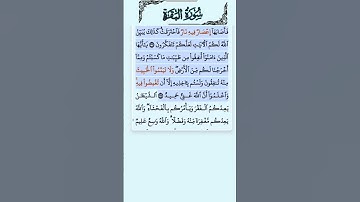 سُورَةُ الْبَقَرَةِ
فَأَصَابَهَا إِعْصَارٌ فِيهِ نَارٌ فَاحْتَرَقَتْ كَذَٰلِكَ يُبَيِّنُ
اللَّهُ لَكُمُ الْآيَاتِ لَعَلَّكُمْ تَتَفَكَّرُونَ يَا أَيُّهَا
الَّذِينَ آمَنُوا أَنْفِقُوا مِنْ طَيِّبَاتِ مَا كَسَبْتُمْ وَمِمَّا
أَخْرَجْنَا لَكُمْ مِنَ الْأَرْضِ وَلَا تَيَمَّمُوا الْخَبِيثَ
مِنْهُ تُنْفِقُونَ وَلَسْتُمْ بِآخِذِيهِ إِلَّا أَنْ تُغْمِضُوا فِيهِ
وَاعْلَمُوا أَنَّ اللَّهَ غَنِيٌّ حَمِيدٌ الشَّيْطَانُ
يَعِدُكُمُ الْفَقْرَ وَيَأْمُرُكُمْ بِالْفَحْشَاءِ وَاللَّهُ
يَعِدُكُمْ مَغْفِرَةً مِنْهُ وَفَضْلًا وَاللَّهُ وَاسِعٌ عَلِيمٌ